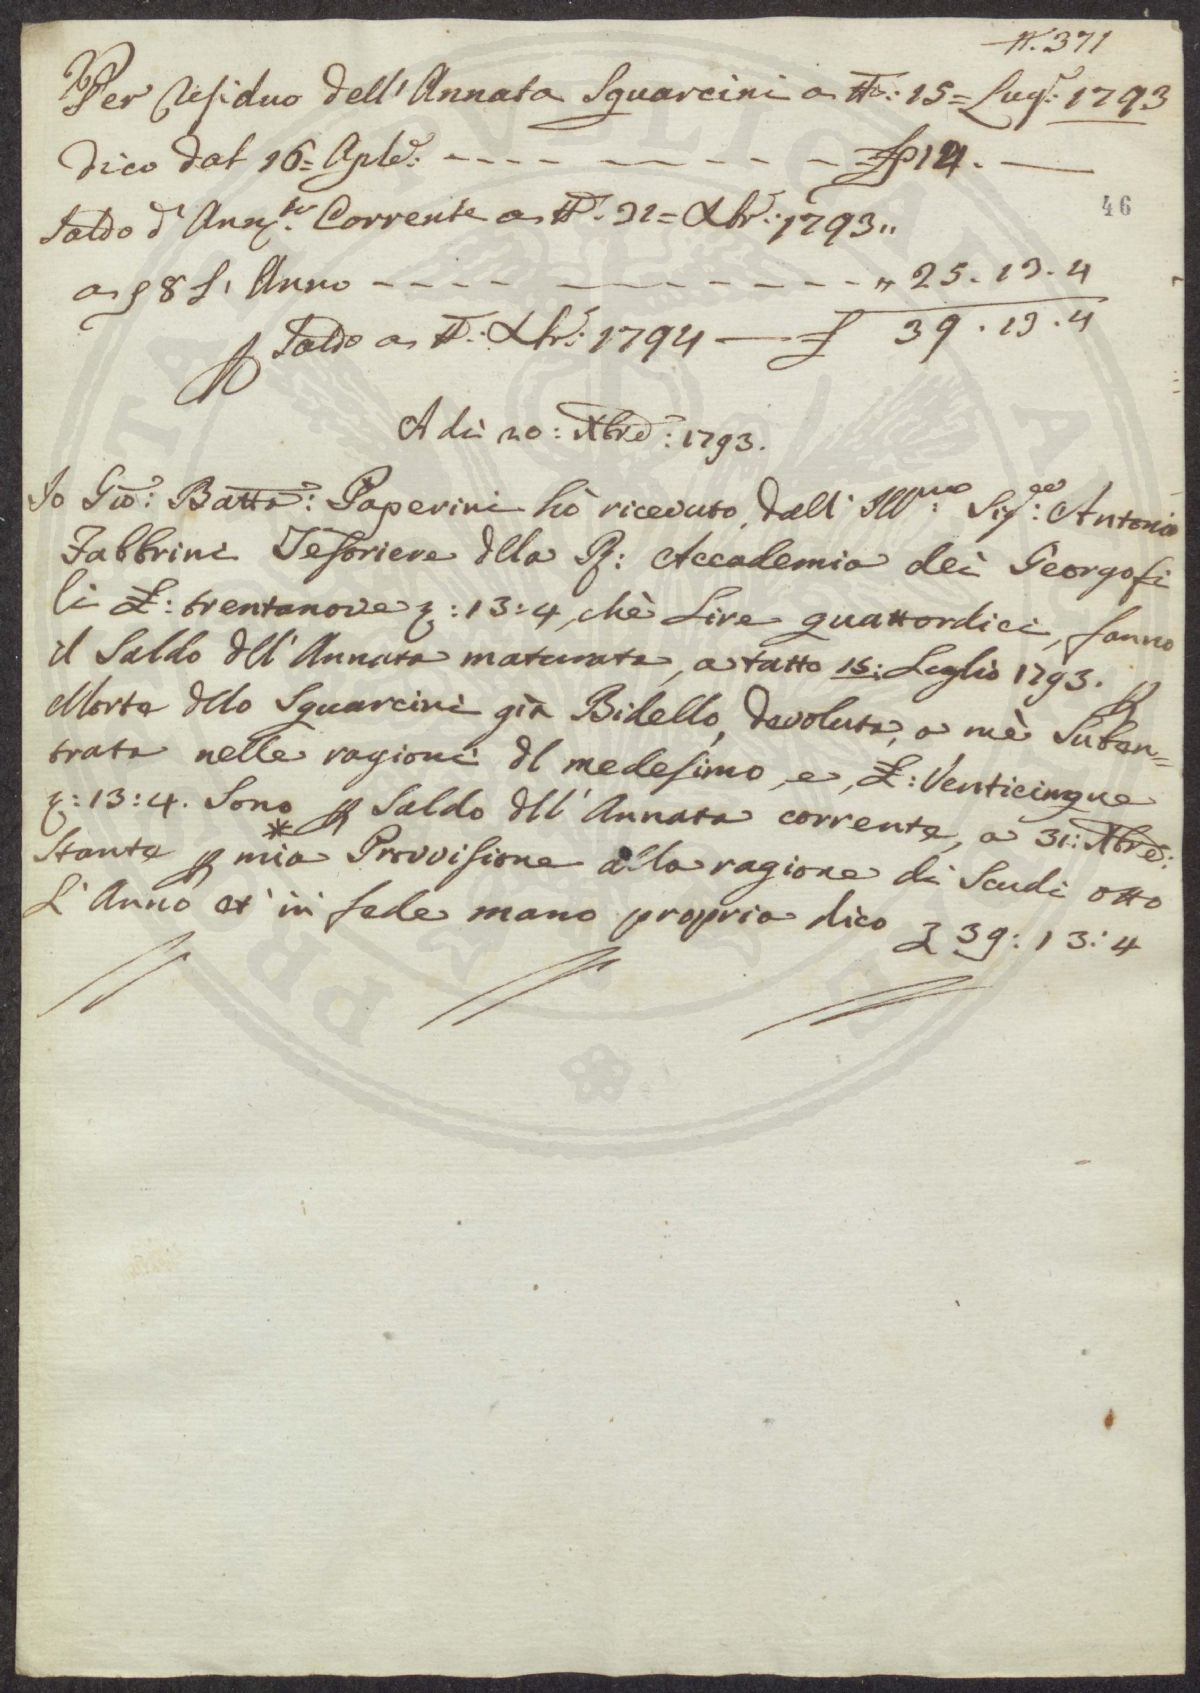 N. 371
Per residuo dell' Annata Sguarcini a tto: 15= Lug: 1793
dico dal 16= Aple: - - - - - - - - - £ 14. —
46
Saldo d' Ann.ta Corrente a tt: 31= Xbr: 1793..
a 8 L' Anno - - - - - - - - - " 25. 13. 4
Saldo a tt: Xbr: 1794 — £ 39. 13. 4
A di 20: Xbre: 1793.
Io Gio: Batta: Paperini hò ricevuto, dall' Ill.mo: Sig.re: Antonio
Fabbrini Tesoriere dlla R: Accademia dei Georgofi
li £: trentanove 13:4, chè Lire quattordici, fanno
il Saldo dll' Annata maturata, a tutto 15: Luglio 1793. p
Morte dllo Sguarcini già Bidello, devoluta, a mè Suben=
trato nelle ragioni dl medesimo, e, £: Venticinque
13:4. Sono p Saldo dll' Annata corrente, a 31: Xbre:
Stante p * mia Provvisione alla ragione di Scudi otto
L' Anno et in fede mano propria dico £ 39: 13: 4
PROPRIETA PVBLICA